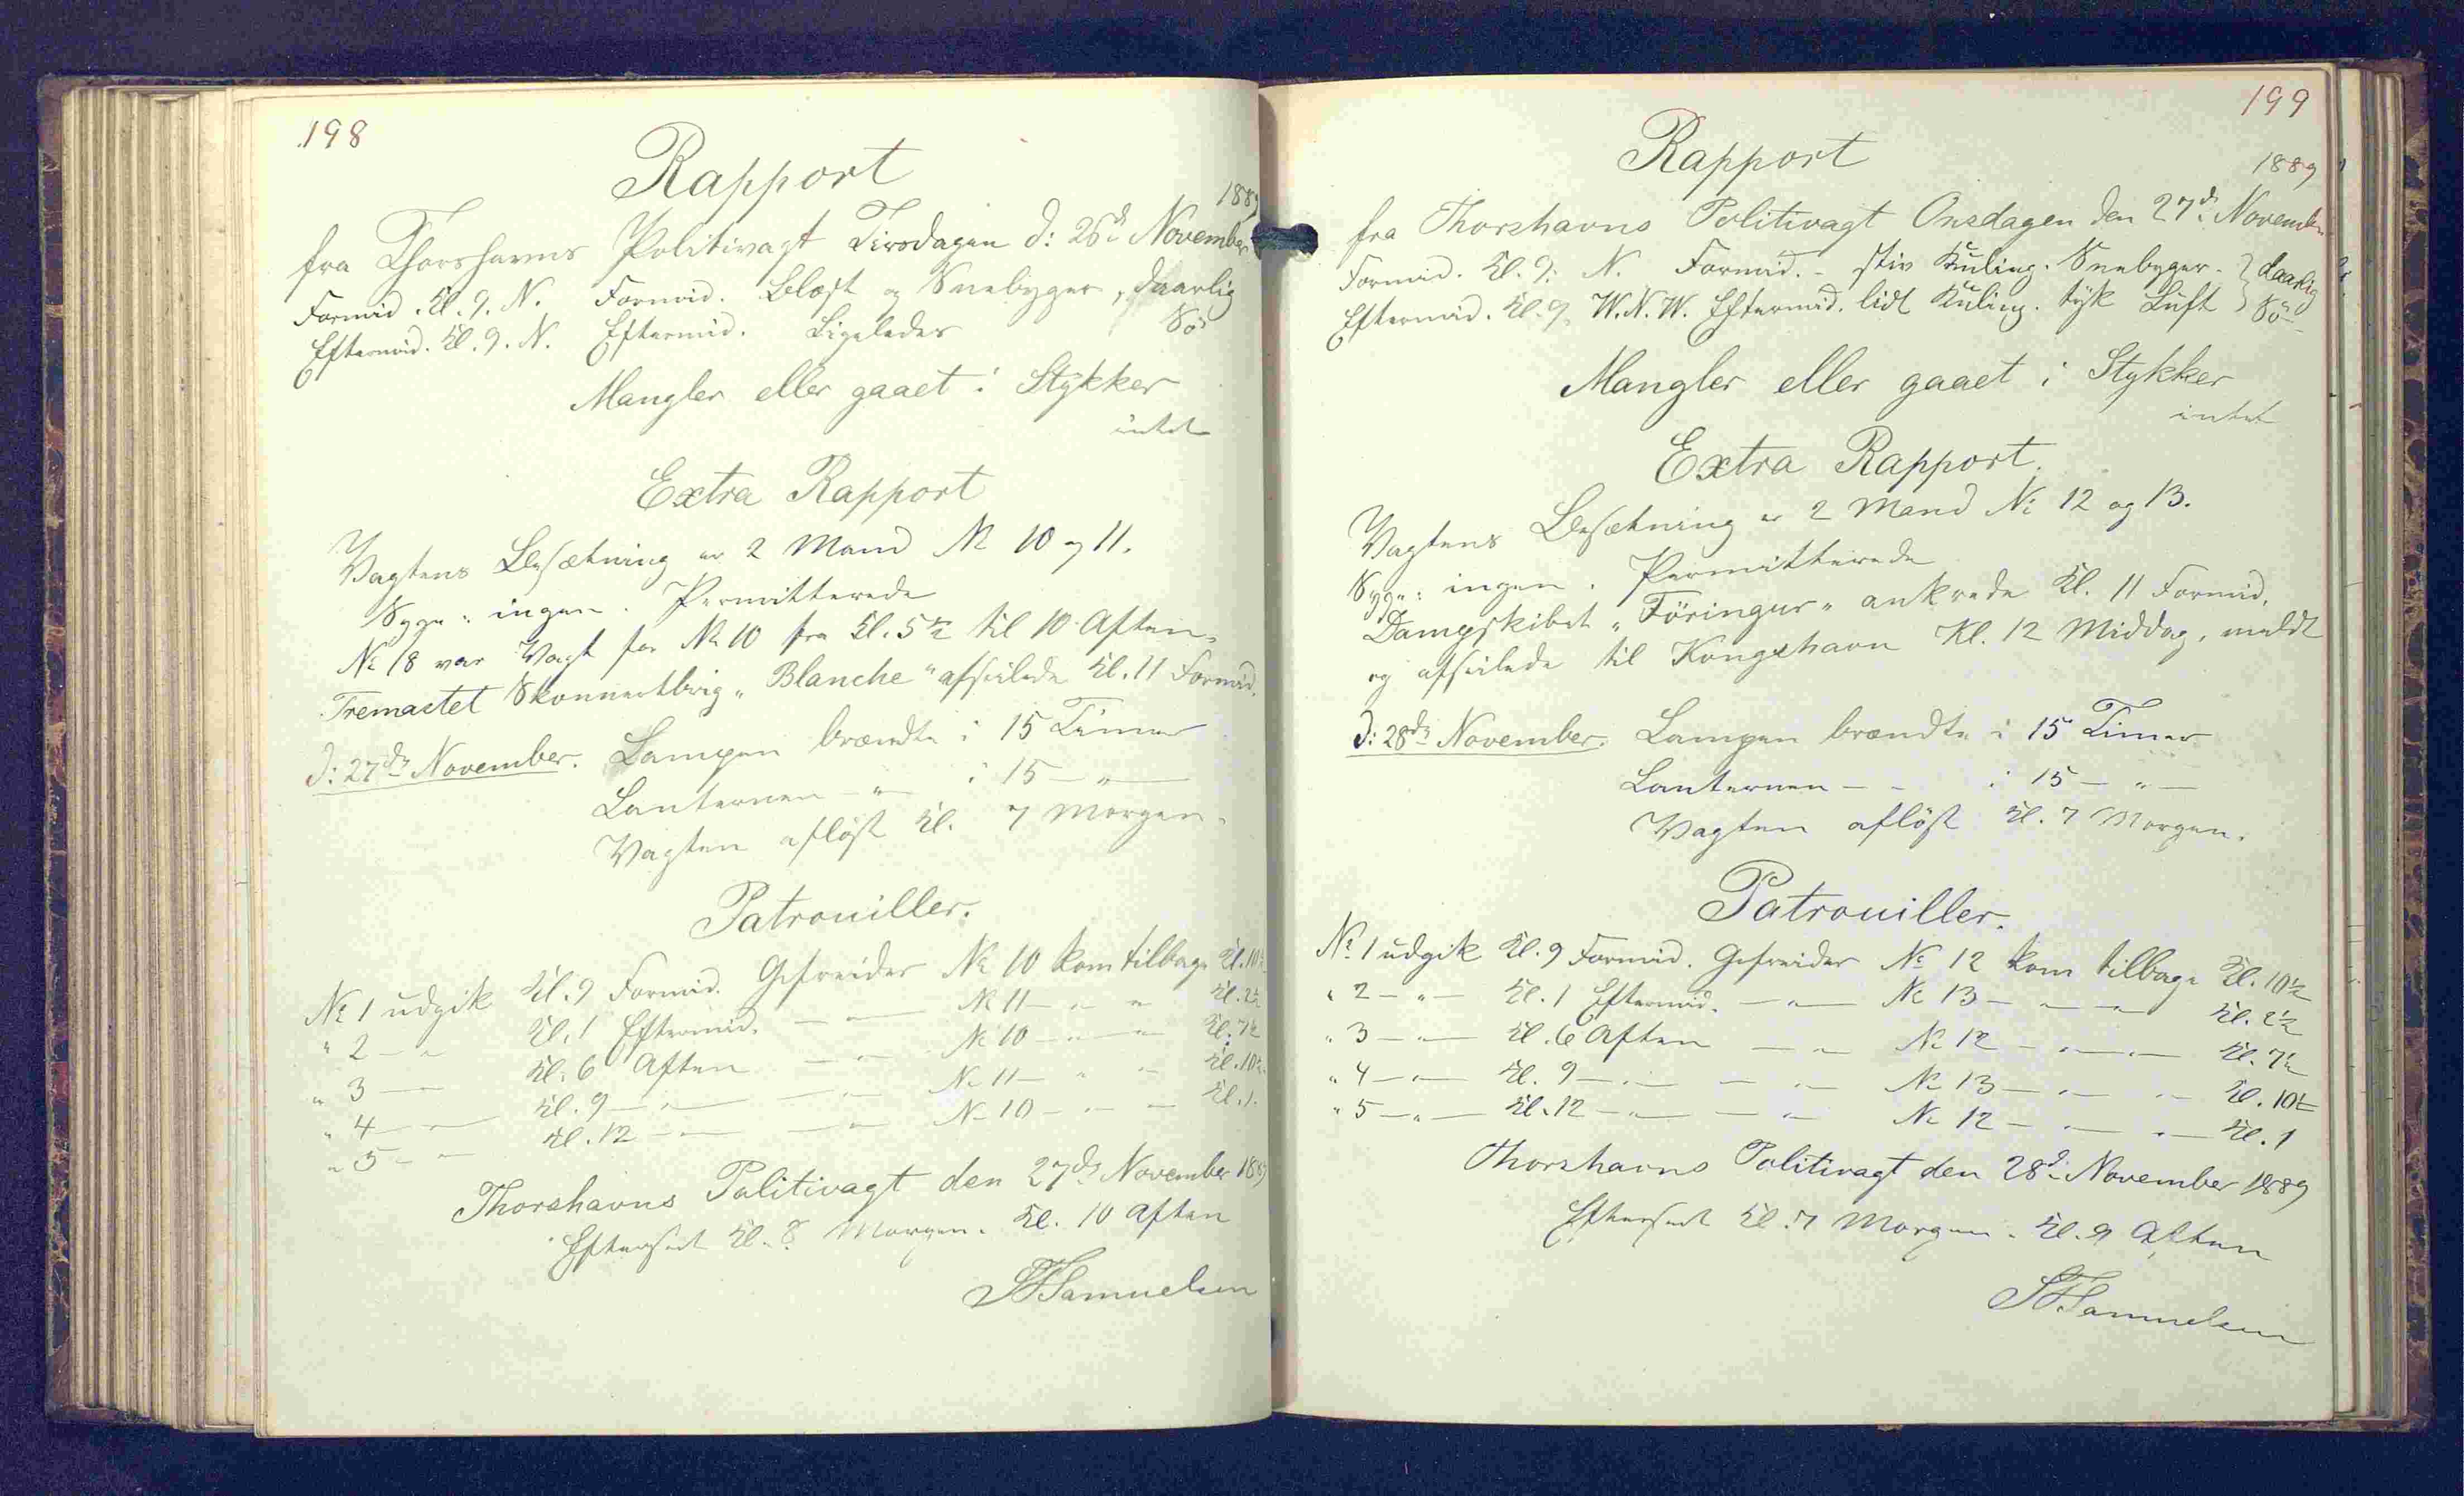 198
Rapport
1889
fra Thorshavns Politivagt Tirsdagen d: 26de November
Formid. Kl. 9. N. Formid. Blæst og Sneebyger, daarlig
Eftermid. Kl. 9. N. Eftermid. Ligeledes Sö
Mangler eller gaaet i Stykker
intet
Extra Rapport
Vagtens Besætning er 2 Mand No 10 og 11.
Syge: ingen. Permitterede
No 18 var Vagt for No 10 fra Kl. 5½ til 10 Aften.
Tremastet Skonnertbrig „Blanche“ afseilede Kl. 11 Formid.
d: 27de November. Lampen brændte i 15 Timer
Lanternen — „ — i 15 — „ —
Vagten aflöst Kl. 7 Morgen.
Patrouiller.
No 1 udgik Kl. 9 Formid. Gefreider No 10 kom tilbage Kl. 10½
" 2 — „ Kl. 1 Eftermid. — „ — No 11 — „ „ Kl. 2½
" 3 — „ Kl. 6 Aften — „ — No 10 — „ — Kl. 7½
" 4 — „ — Kl. 9 — „ — — „ — No 11 — „ „ Kl. 10½
" 5 — „ Kl. 12 — „ — — „ — No 10 — „ — Kl. 1.
Thorshavns Politivagt den 27de November 1889
Efterseet Kl. 8 Morgen. Kl. 10 Aften
Samuelsen
199
Rapport
1889
fra Thorshavns Politivagt Onsdagen den 27de November
Formid. Kl. 9. N. Formid. - stiv Kuling. Sneebyger. } daarlig
Eftermid. Kl. 9. W.N.W. Eftermid. lidt Kuling. tyk Luft } Sö
Mangler eller gaaet i Stykker
intet
Extra Rapport.
Vagtens Besætning er 2 Mand No 12 og 13.
Syge: ingen. Permitterede
Dampskibet „Föringur“ ankrede Kl. 11 Formid.
og afseilede til Kongshavn Kl. 12 Middag, meldt
d: 28de November. Lampen brændte i 15 Timer
Lanternen — - i 15 — „ —
Vagten aflöst Kl. 7 Morgen.
Patrouiller.
No 1 udgik Kl. 9 Formid. Gefreider No 12 kom tilbage Kl. 10½
" 2 — „ — Kl. 1 Eftermid. — „ — No 13 — „ — „ Kl. 2½
" 3 — „ — Kl. 6 Aften — „ No 12 — „ — „ — Kl. 7½
" 4 — „ — Kl. 9 — „ — — „ No 13 — „ — „ Kl. 10½
" 5 — „ — Kl. 12 — „ — — „ No 12 — „ — „ — Kl. 1
Thorshavns Politivagt den 28de November 1889
Efterseet Kl. 7 Morgen. Kl. 9 Aften
Samuelsen